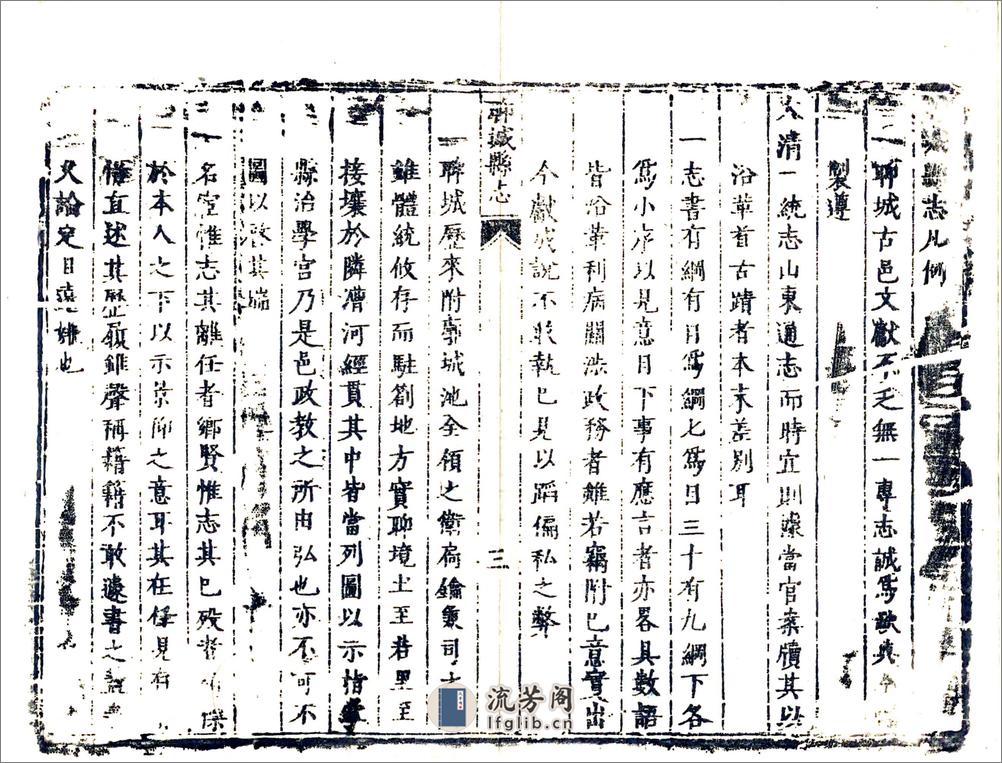 城縣志凡例
一聊城古邑文獻不乏無一專志誠為缺典今
製遵
大清一統志山東通志而時宜則據當官案牘其以
沿革首古蹟者本末羞別耳
一志書有綱有目為綱七為目三十有九綱下各
為小序以見意目下事有應言者亦畧具數語
皆沿革利病關涉政務者雖若竊附己意實出
今獻成說不敢執己見以蹈偏私之弊
聊城縣志
三
一聊城歷來附郭城池全領之衛扃鑰兼司
雖體統攸存而駐劄地方實聊境土至若里至
接壤於隣漕河經貫其中皆當列圖以示指
縣治學宮乃是邑政教之所由弘也亦不可不
圖以啟其端
一名宦惟志其離任者鄉賢惟志其已歿者
於本人之下以示景仰之意耳其在任見有
惟直述其歷履雖聲稱籍籍不敢遽書之
論定日
流芳阁
lfglib.cn